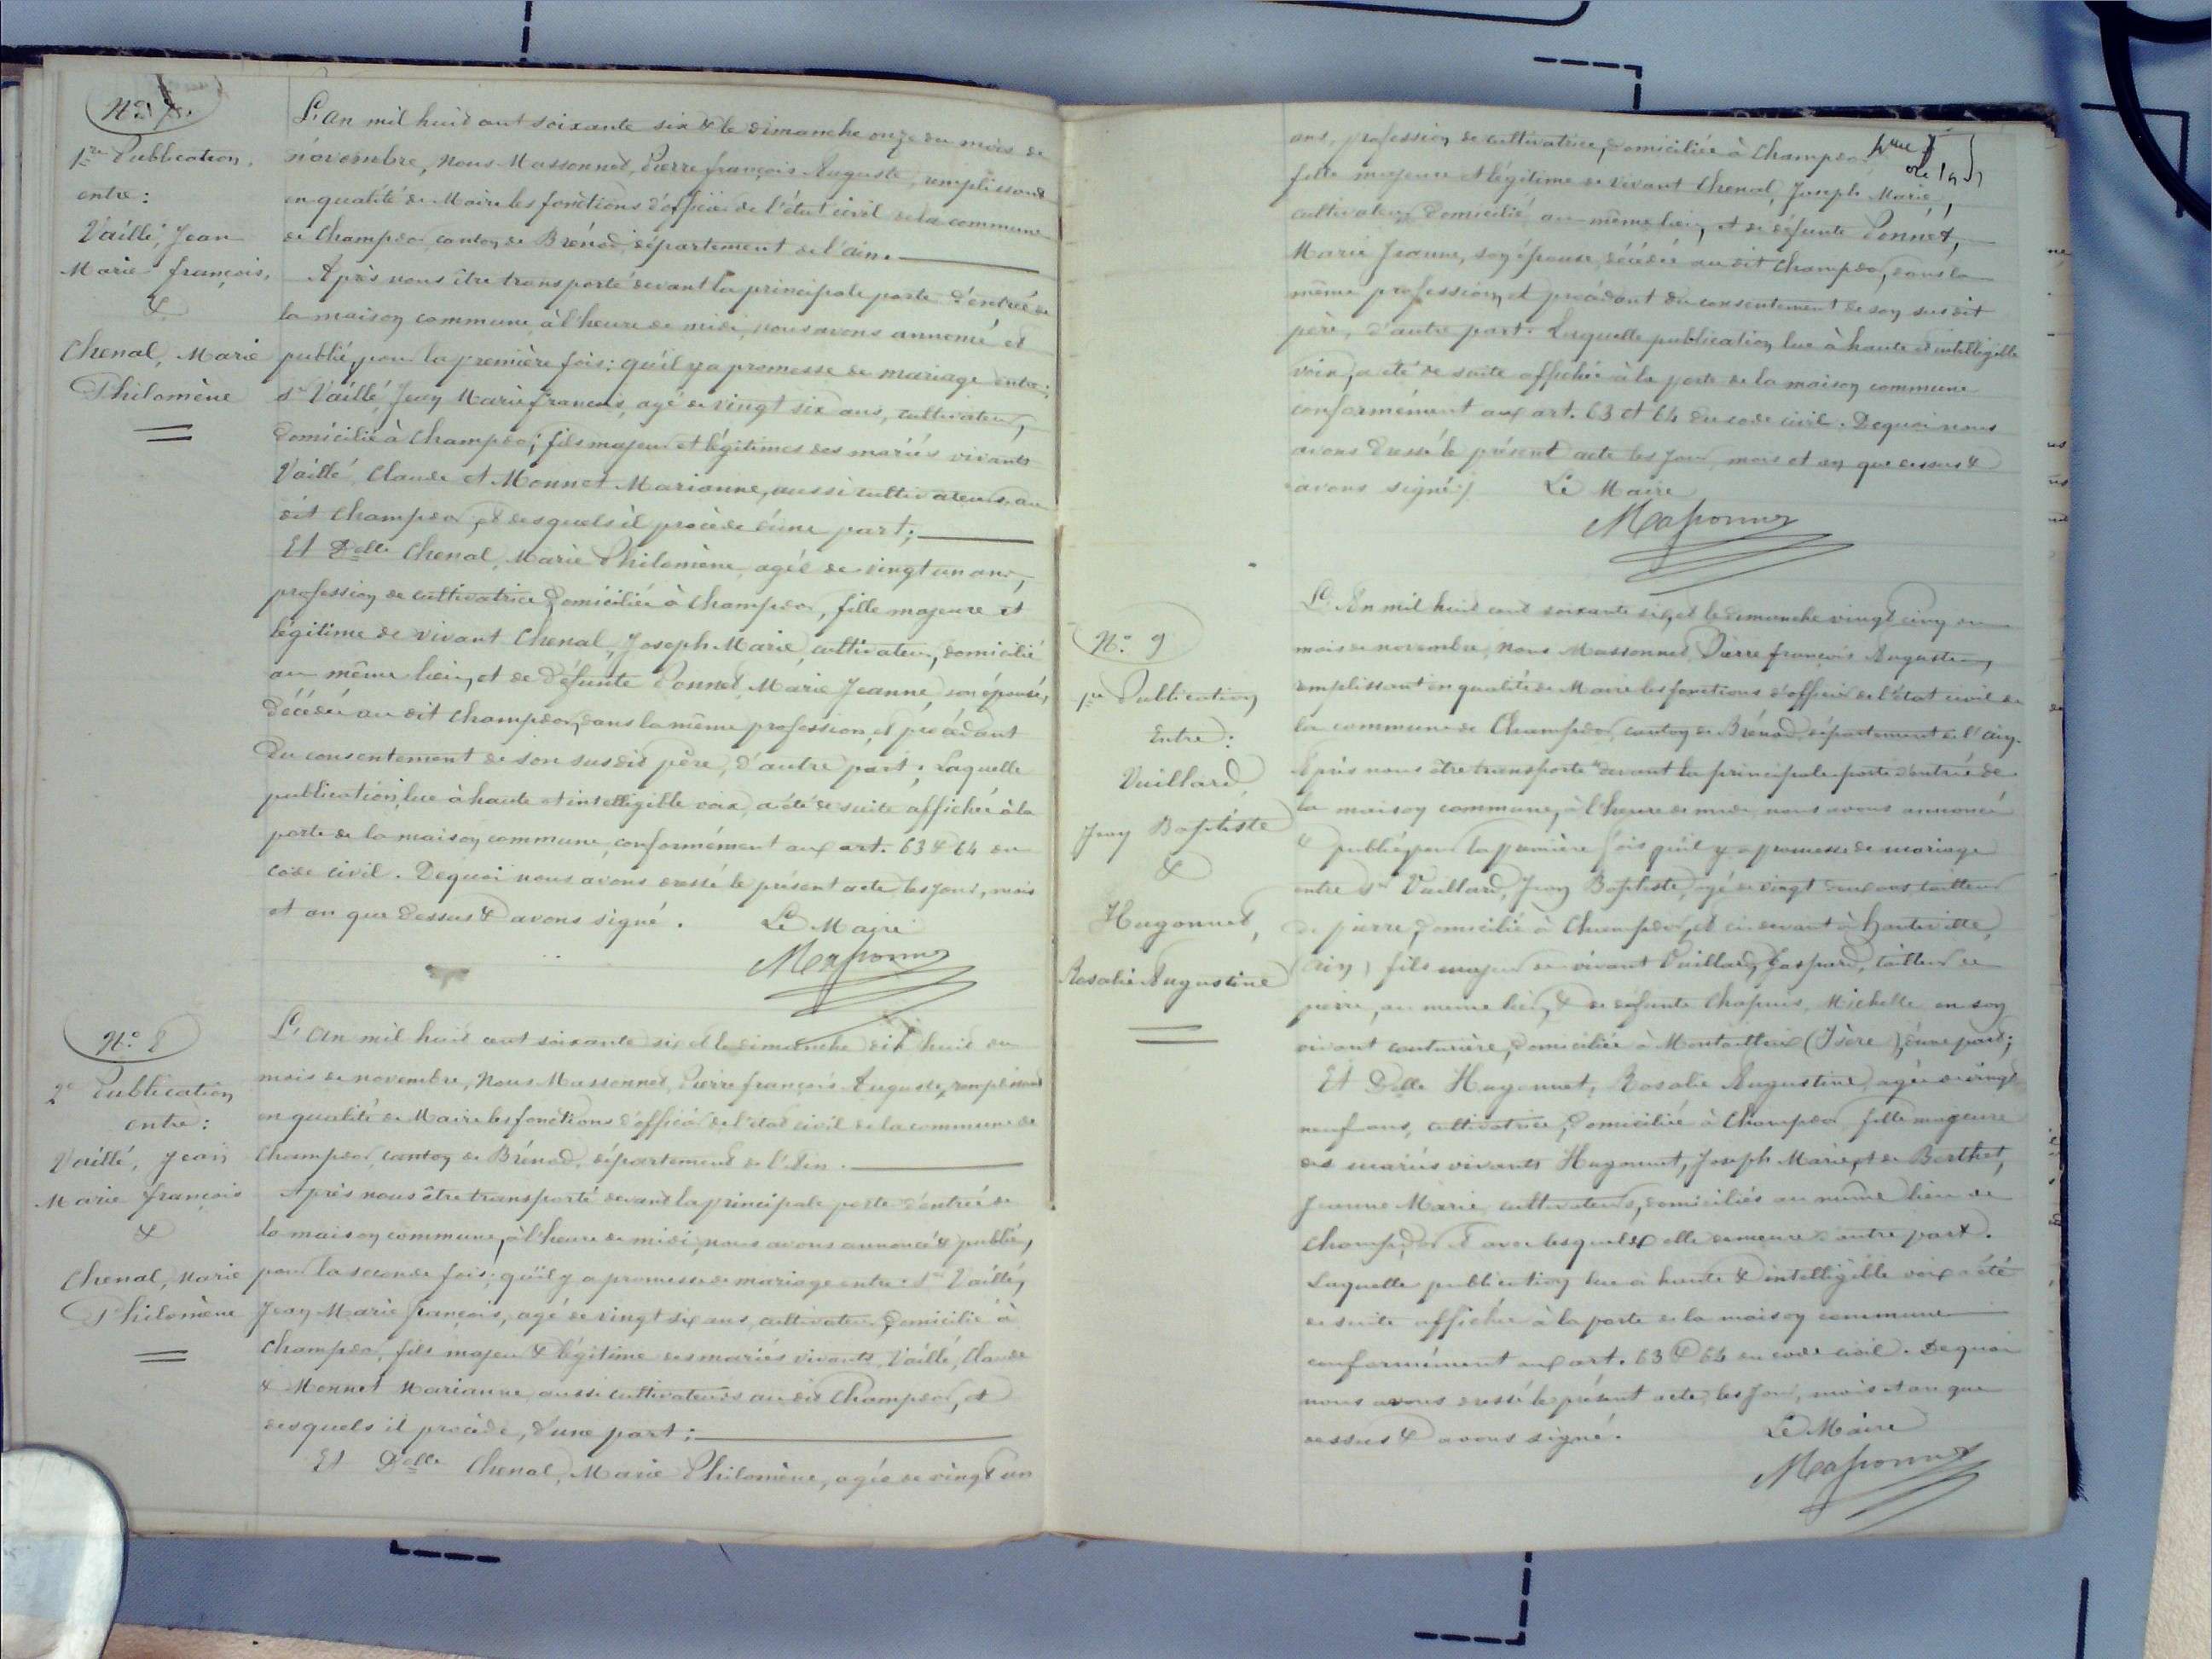 N° 7.
1re Publication,
entre:
Vaillé, Jean
Marie françois,
&
Chenal, Marie
Philomène
L'an mil huit cent soixante six & le dimanche onze du mois de
novembre, Nous Massonnet, Pierre françois Auguste, remplissant
en qualité de Maire les fonctions d'officier de l'état civil de la commune
de Champdor canton de Brénod, département de l'ain.
Après nous être transporté devant la principale porte d'entrée de
la maison commune, à l'heure de midi, nous avons annoncé et
publié, pour la première fois: qu'il y a promesse de mariage entre:
sr Vaillé, Jean Marie françois, agé de vingt six ans, cultivateur,
domicilié à Champdor; fils majeur et légitimes des mariés vivants
Vaillé, Claude et Monnet Marianne, aussi cultivateurs au
dit Champdor, et desquels il procède d'une part;
Et Delle Chenal, Marie Philomène, agée de vingt un ans,
profession de cultivatrice, domiciliée à Champdor, fille majeure et
légitime de vivant Chenal, Joseph Marie, cultivateur, domicilié
au même lieu, et de défunte Ponnet, Marie Jeanne, son épouse,
décédée au dit Champdor, dans la même profession, et procédant
du consentement de son susdit père, d'autre part; Laquelle
publication, lue à haute et intelligible voix, a été de suite affichée à la
porte de la maison commune, conformément aux art. 63 & 64 du
code civil. Dequoi nous avons dressé le présent acte les jour, mois
et an que dessus & avons signé. Le Maire
Massonnet
N° 8
2e Publication
entre:
Vaillé, Jean
Marie françois
&
Chenal, Marie
Philomène
L'an mil huit cent soixante six et le dimanche dix huit du
mois de novembre, Nous Massonnet, Pierre françois Auguste, remplissant
en qualité de Maire les fonctions d'officier de l'état civil de la commune de
Champdor, canton de Brénod, département de l'Ain.
Après nous être transporté devant la principale porte d'entrée de
la maison commune, à l'heure de midi, nous avons annoncé & publié,
pour la seconde fois; qu'il y a promesse de mariage entre: sr Vaillé,
Jean Marie françois, agé de vingt six ans, cultivateur, domicilié à
Champdor, fils majeur & légitime des mariés vivants, Vaillé, Claude
& Monnet Marianne, aussi cultivateurs au dit Champdor, et
desquels il procède, d'une part;
Et Delle Chenal, Marie Philomène, agée de vingt un
ans, profession de cultivatrice, domiciliée à Champdor
fille majeure et légitime de vivant Chenal, Joseph Marie,
cultivateur, domicilié au même lieu, et de défunte Ponnet,
Marie Jeanne, son épouse, décédée au dit Champdor, dans la
même profession, et procédant du consentement de son susdit
père, d'autre part. Laquelle publication, lue à haute et intelligible
voix, a été de suite affichée à la porte de la maison commune
conformément aux art. 63 et 64 du code civil. Dequoi nous
avons dressé le présent acte les jour, mois et an que dessus &
avons signé. Le Maire
Massonnet
N° 9
1re Publication
Entre:
Vuillard,
Jean Baptiste
&
Hugonnet,
Rosalie Augustine
L'An mil huit cent soixante six, et le dimanche vingt cinq du
mois de novembre, Nous Massonnet, Pierre françois Auguste,
remplissant en qualité de Maire les fonctions d'officier de l'état civil de
la commune de Champdor, canton de Brénod, département de l'Ain.
Après nous être transporté devant la principale porte d'entrée de
la maison commune, à l'heure de midi, nous avons annoncé
& publié, pour la première fois qu'il y a promesse de mariage
entre sr Vuillard, Jean Baptiste, agé de vingt ans, tailleur
de pierre, domicilié à Champdor, et ci-devant à hauteville,
(Ain) fils majeur de vivant Vuillard, Gaspard, tailleur de
pierre, au même lieu, & de défunte Chapuis, Michelle en son
vivant couturière, domiciliée à (Isère), d'une part;
Et Delle Hugonnet, Rosalie Augustine, agée de vingt
neuf ans, cultivatrice, domiciliée à Champdor fille majeure
des mariés vivants Hugonnet, Joseph Marie, et de Berthet,
Jeanne Marie, cultivateurs, domiciliés au même lieu de
Champdor & avec lesquels elle demeure d'autre part.
Laquelle publication lue à haute & intelligible voix a été
de suite affichée à la porte de la maison commune
conformément aux art. 63 & 64 du code civil. Dequoi
nous avons dressé le présent acte, les jour, mois et an que
dessus & avons signé. Le Maire
Massonnet